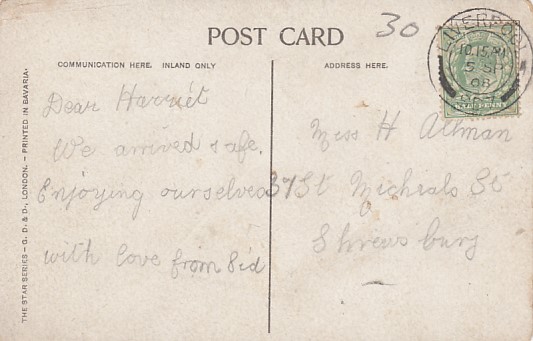 30
POST CARD
COMMUNICATION HERE. INLAND ONLY
ADDRESS HERE.
LIVERPOOL
10.15 PM
5 SP
08
HALFPENNY
Dear Harriet
We arrived safe.
Enjoying ourselves
with love from Sid
Miss H Altman
37 St Micheals St
Shrewsbury
THE STAR SERIES – G. D. & D., LONDON. – PRINTED IN BAVARIA.